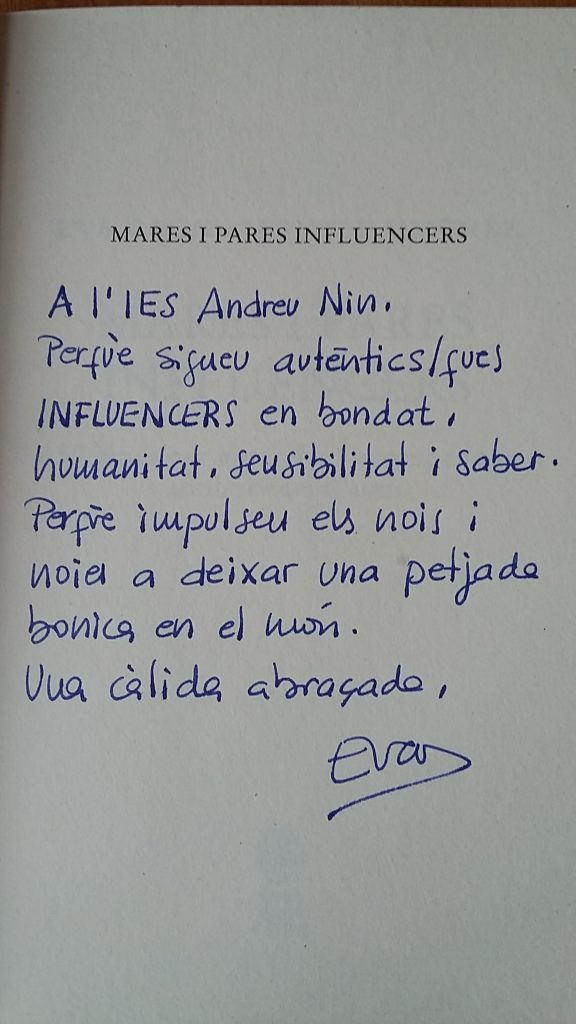 MARES I PARES INFLUENCERS
A l'IES Andreu Nin.
Perquè sigueu autèntics/ques
INFLUENCERS en bondat,
humanitat, sensibilitat i saber.
Perquè impulseu els nois i
noies a deixar una petjada
bonica en el món.
Una càlida abraçada,
Eva